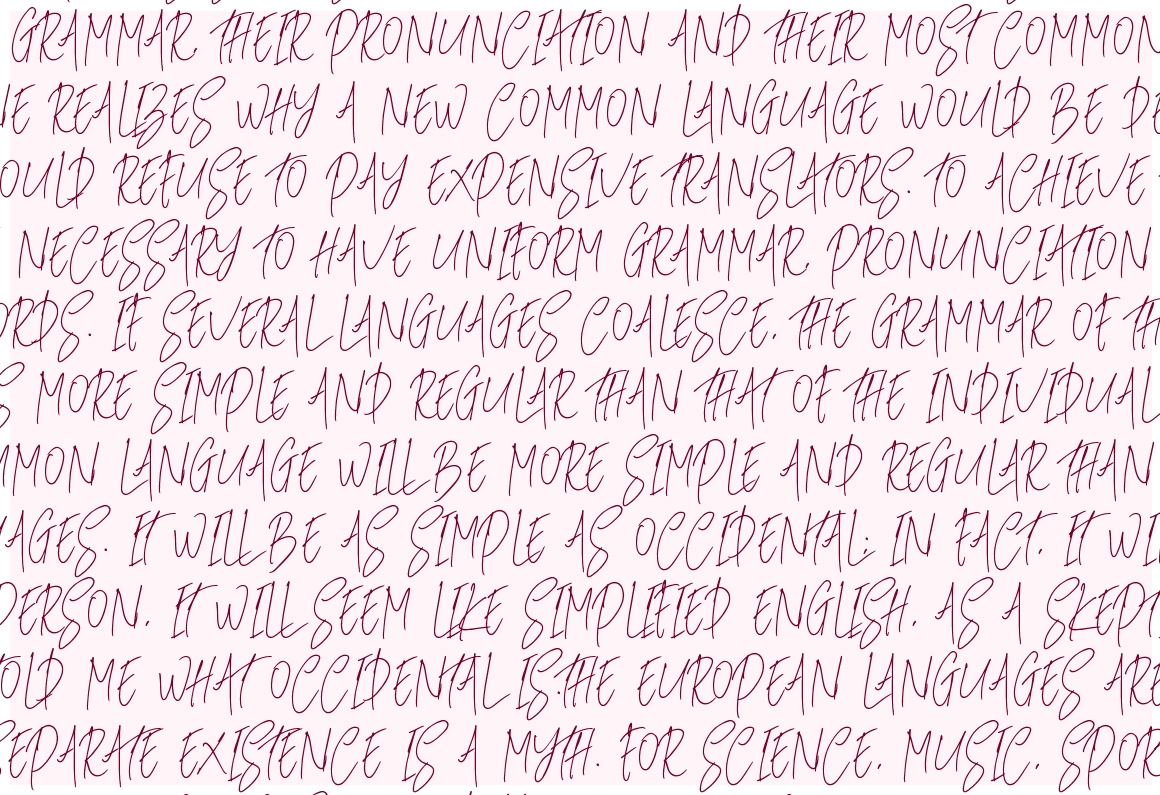 GRAMMAR, THEIR PRONUNCIATION AND THEIR MOST COMMON
REALIZES WHY A NEW COMMON LANGUAGE WOULD BE
REFUSE TO PAY EXPENSIVE TRANSLATORS. TO ACHIEVE
NECESSARY TO HAVE UNIFORM GRAMMAR, PRONUNCIATION
IF SEVERAL LANGUAGES COALESCE, THE GRAMMAR OF
MORE SIMPLE AND REGULAR THAN THAT OF THE INDIVIDUAL
LANGUAGE WILL BE MORE SIMPLE AND REGULAR THAN
IT WILL BE AS SIMPLE AS OCCIDENTAL; IN FACT, IT
IT WILL SEEM LIKE SIMPLIFIED ENGLISH, AS A
ME WHAT OCCIDENTAL IS.THE EUROPEAN LANGUAGES ARE
SEPARATE EXISTENCE IS A MYTH. FOR SCIENCE, MUSIC,